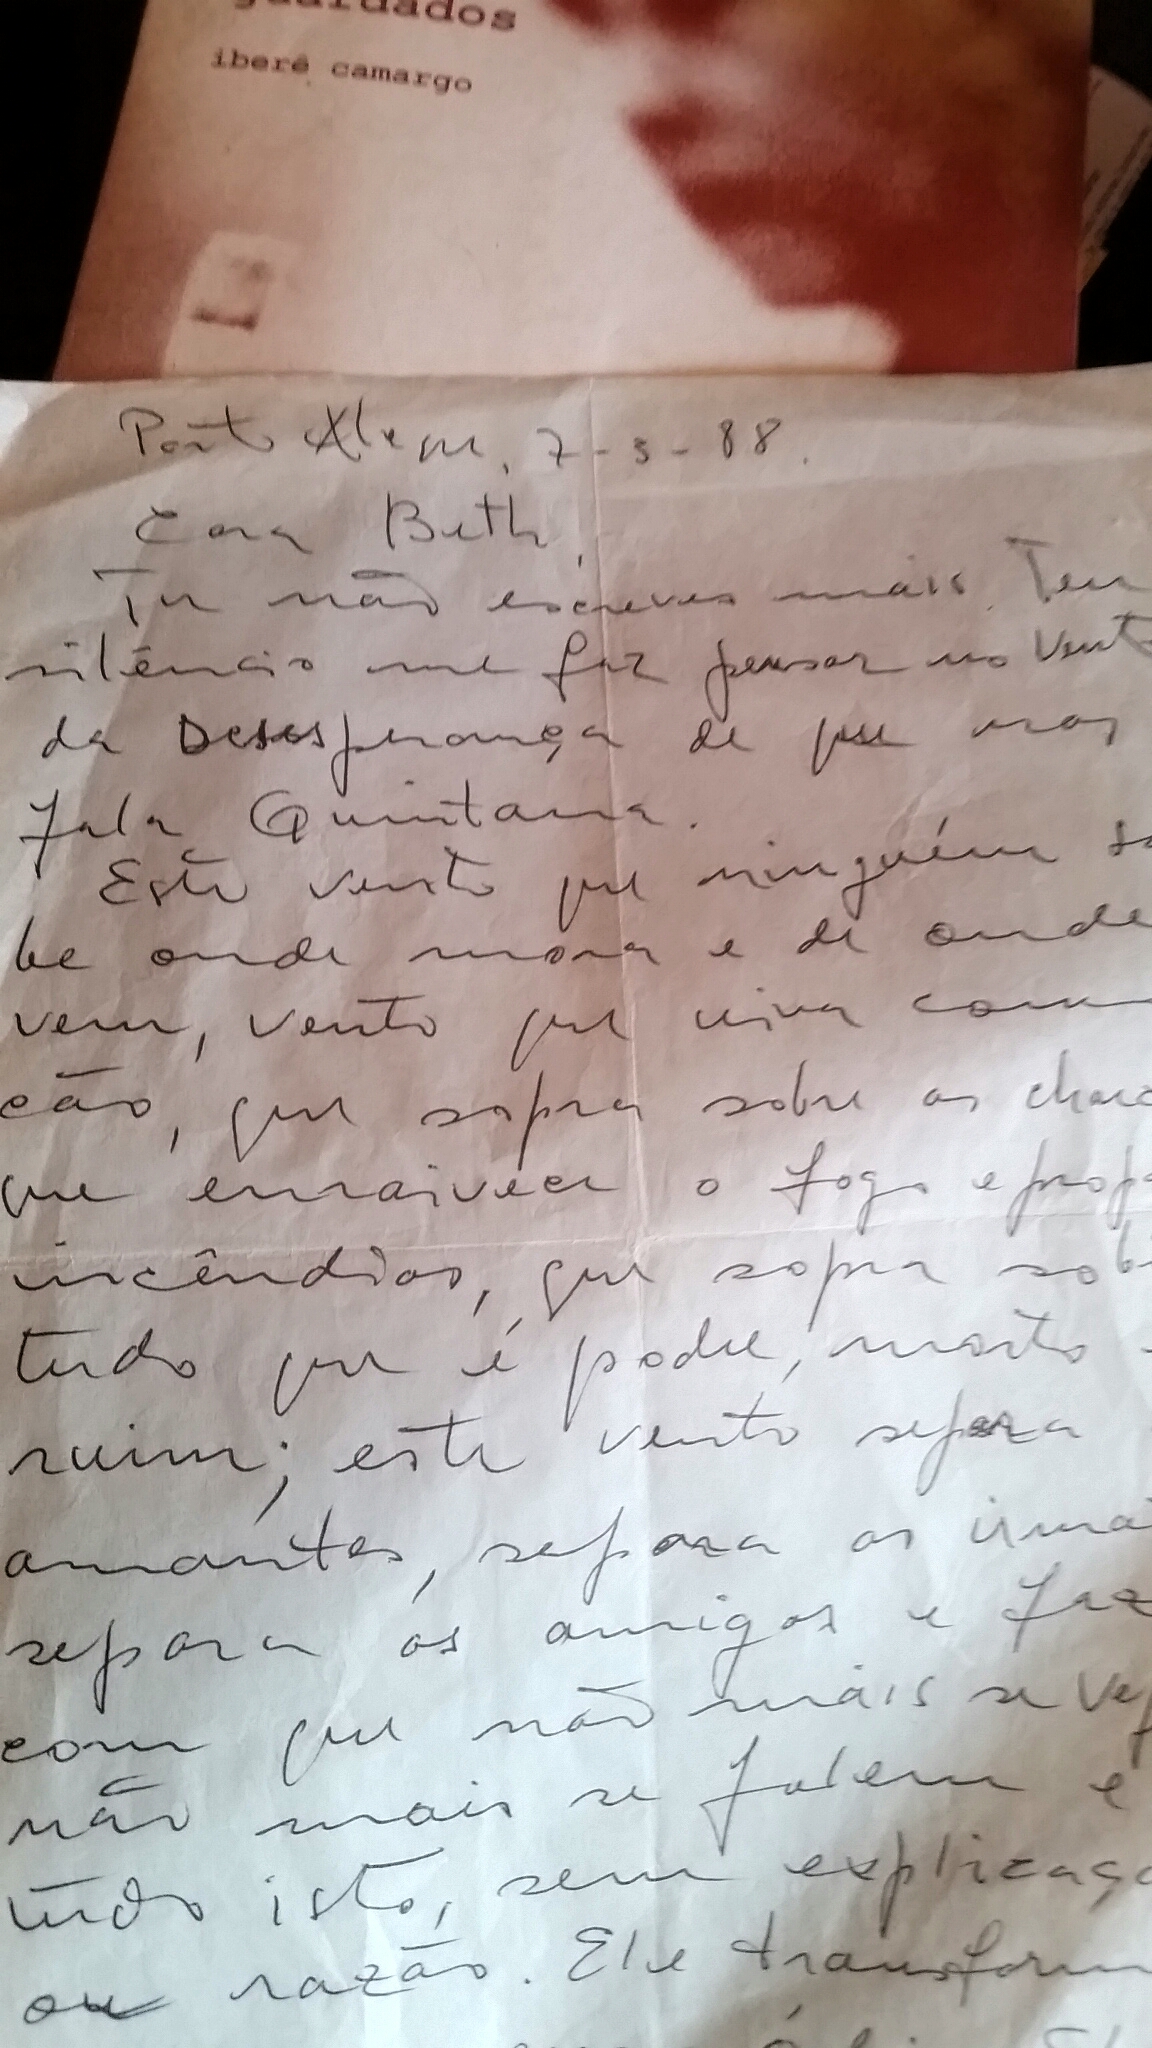 guardados
iberê camargo
Porto Alegre, 7-3-88.
Cara Beth,
Tu não escreves mais. Teu
silêncio me faz pensar no vento
da Desesperança de que
fala Quintana.
Este vento que ninguém sa
be onde mora e de onde
vem, vento que uiva como
cão, que sopra sobre as
que enraivece o fogo e propa
incêndios, que sopra sob
tudo que é podre, morto e
ruim; este vento separa
amantes, separa os irmã
separa os amigos e faz
com que não mais se vej
não mais se falem e
tudo isto, sem explicaçã
ou razão. Ele transform